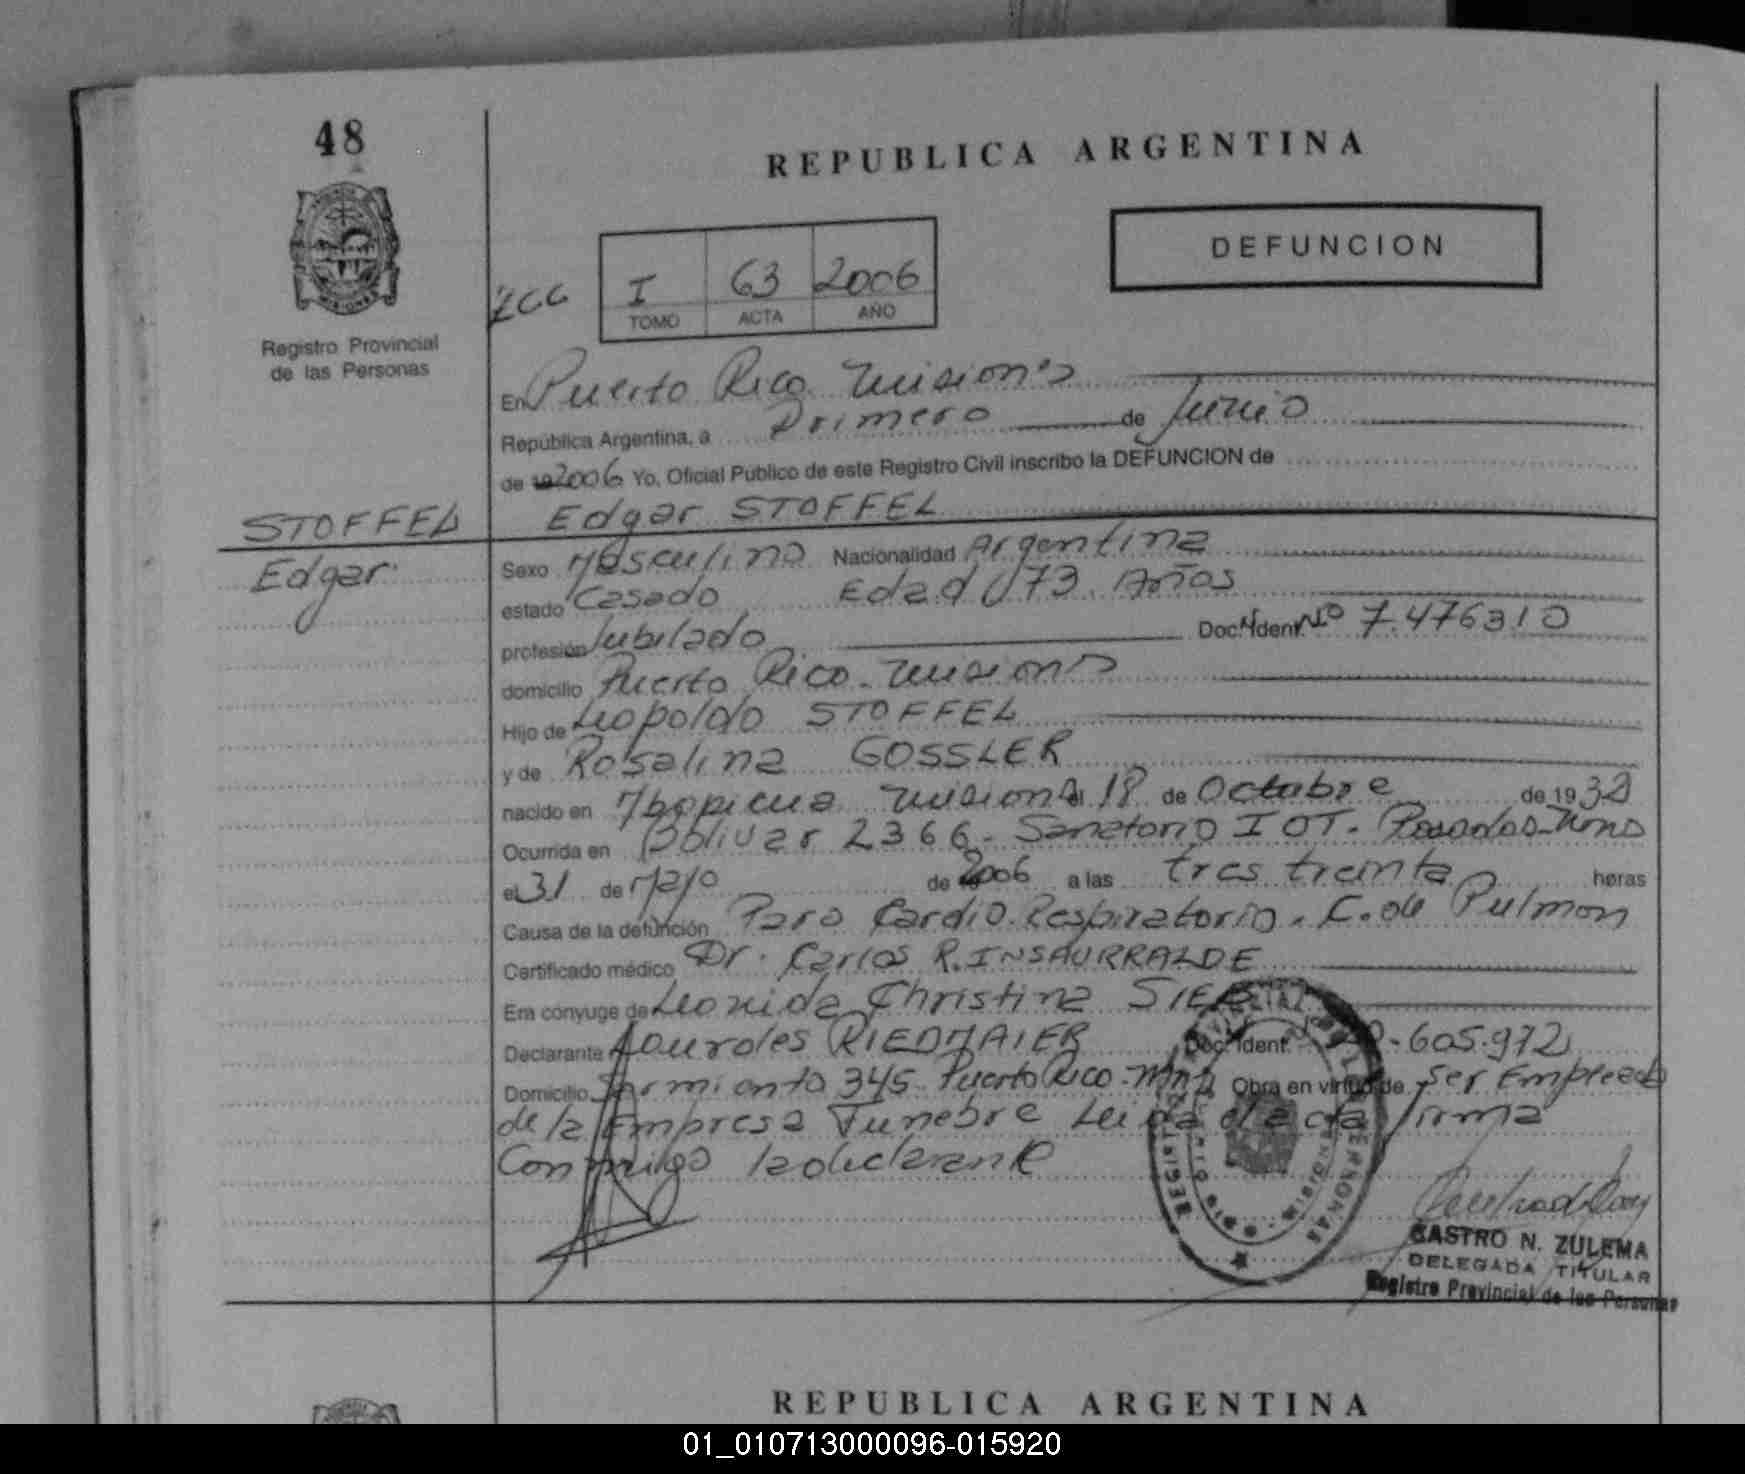 48
REPUBLICA ARGENTINA
DEFUNCION
I 63 2006
TOMO ACTA AÑO
Registro Provincial
de las Personas
En Puerto Rico. Misiones
República Argentina, a Primero de Junio
de 2006 Yo, Oficial Público de este Registro Civil inscribo la DEFUNCION de
STOFFEL Edgar STOFFEL
Edgar Sexo Masculino Nacionalidad Argentina
estado Casado Edad 73. Años
profesión Jubilado Doc. Ident. Nº 7.476310
domicilio Puerto Rico. Misiones
Hijo de Leopoldo STOFFEL
y de Rosalina GOSSLER
nacido en Ybapicua Misiones el 18 de Octubre de 1932
Ocurrida en Bolivar 2366. Sanatorio IOT. Posadas-Mnes
el 31 de Mayo de 2006 a las tres treinta horas
Causa de la defunción Paro Cardio.Respiratorio. C. de Pulmon
Certificado médico Dr. Carlos R. INSAURRALDE
Era cónyuge de Leonida Christina
Declarante Lourdes RIEDMAIER Doc. Ident. 605.972
Domicilio Sarmiento 345. Puerto Rico. Mnes Obra en virtud de Ser Empleada
de la Empresa Funebre Leida el acta firma
Conmigo la declarante
CASTRO N. ZULEMA
DELEGADA TITULAR
Registro Provincial de las Personas
REPUBLICA ARGENTINA
01_010713000096-015920